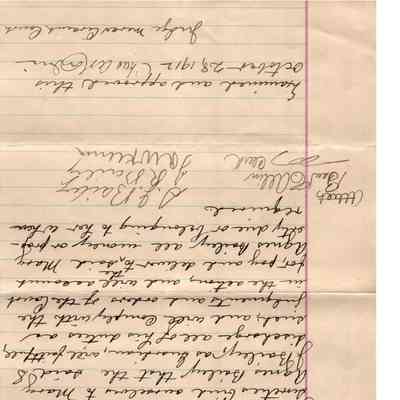 sureties bind ourselves to Mary
Agnes Bailey that the said S
J Bailey, as Guardian, will faithfully
discharge all of his duties as
such, and will comply with the
judgments and orders of the Court
in the action, and will account
for, pay and deliver to, the said Mary
Agnes Bailey, all money or prop-
erty due or belonging to her when
required
S J Bailey
J R Bailey
Attest
Allin
Clerk
Examined and approved this
October 28, 1912 Charles
Judge Mercer Circuit Court